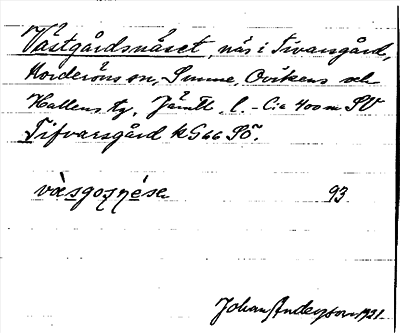 Västgårdsnäset, näs i Tivarsgård,
Norderöns sn, Sunne, Ovikens och
Hallens tg, Jämtl. l. - Ca 400 m SV
Tifvarsgård kG66 SÖ.
väsgoṣnése 93
Johan Anderson 1921